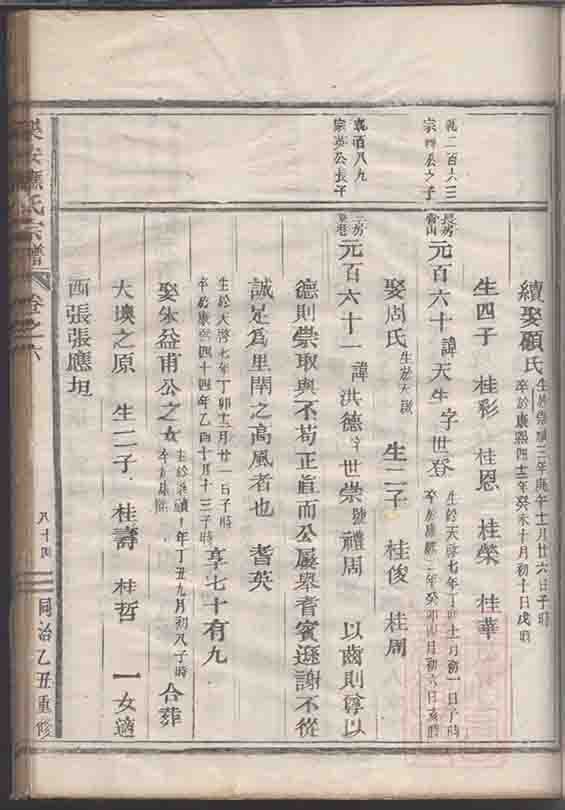 續娶顧氏
生於崇禎三年庚午十二月廿六日子時
卒於康熙四十二年癸未十月初十日戌時
生四子 桂彩 桂恩 桂榮 桂華
乾二百六三
宗四公之子
長房
元百六十 諱天生字世登
生於天啓七年丁卯十二月初一日子時
卒於康熙二年癸卯四月初六日亥時
娶周氏
生於天啟
生二子 桂俊 桂周
乾百八九
宗英公長子
元百六十一 諱洪德字世崇號禮周 以齒則尊以
德則崇取與不苟正直而公屢舉耆賓遜謝不從
誠足為里閈之高風者也 耆英
生於天啓七年丁卯十二月廿一日子時
卒於康熙四十四年乙酉十月十三子時
享七十有九
娶朱益甫公之女
年丁丑九月初八子時
合葬
大墺之原 生二子 桂壽 桂哲 一女適
西張張應垣
氏宗譜 卷之六
八十四
同治乙丑重修